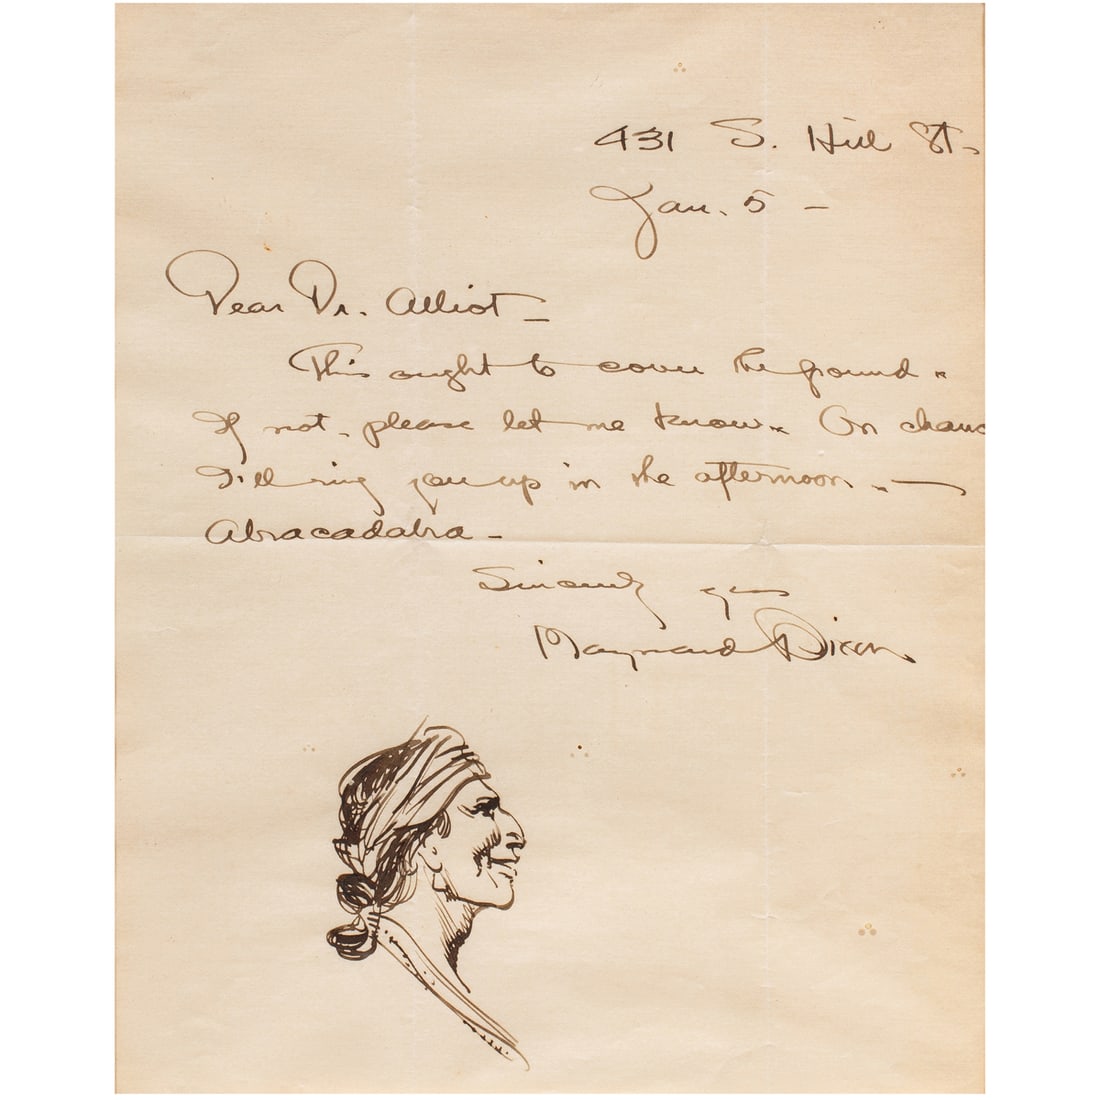 431 S. Hill St.
Jan. 5 –
Dear Dr. Alliot –
This ought to cover the ground.
If not, please let me know. On chanc
I'll ring you up in the afternoon. —
Abracadabra –
Sincerely yrs
Maynard Dixon